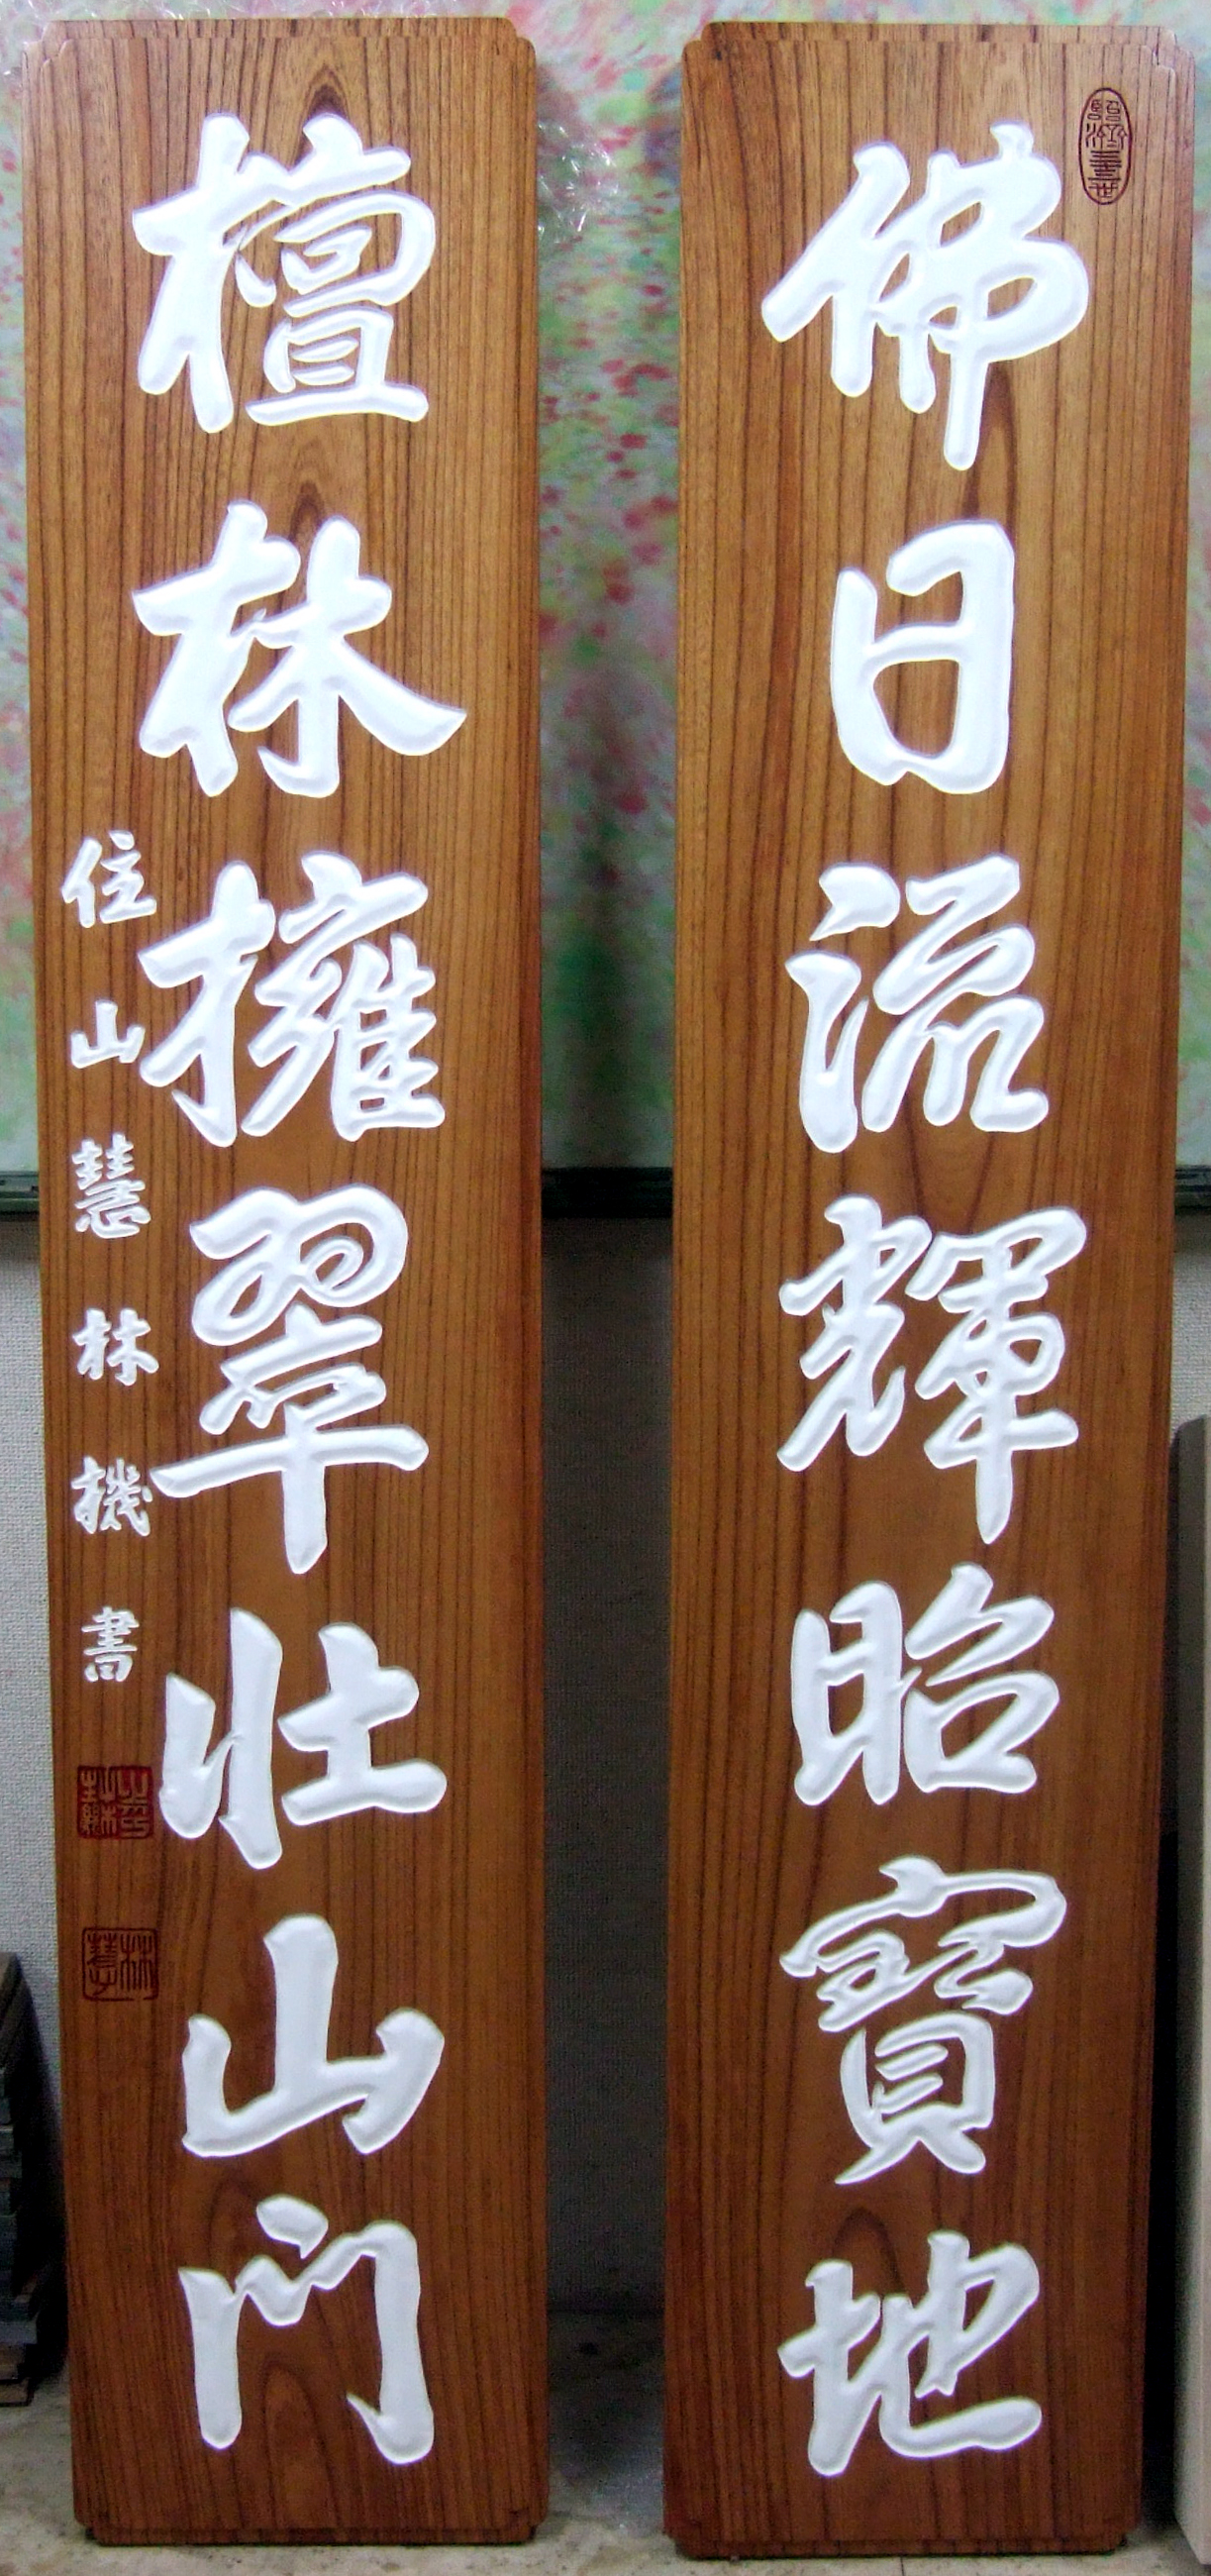 佛日流輝昭寶地
檀林擁翠壯山門
住山慧林機書